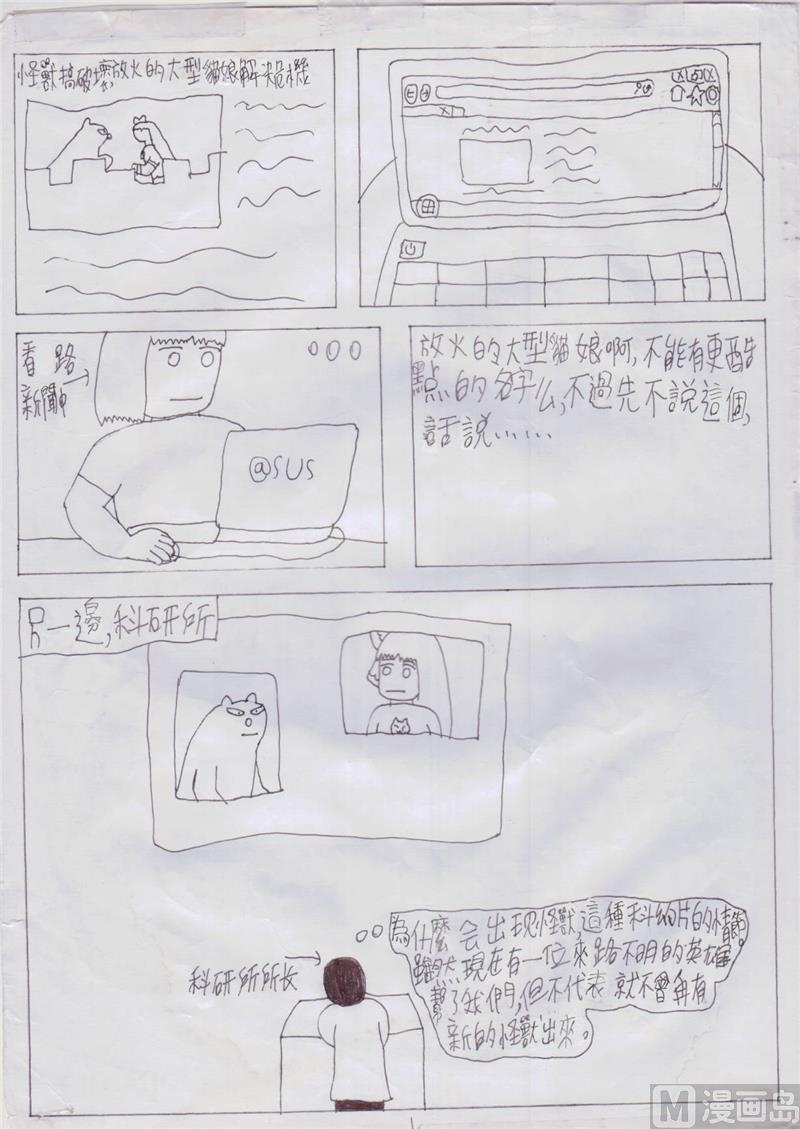 怪獸搞破壞放火的大型貓娘解決危機
看路
新聞中
@SUS
放火的大型貓娘啊,不能有更酷
點的名字么,不過先不說這個,
話說……
另一邊,科研所
科研所所长
為什麼会出現怪獸這種科幻片的情節。
雖然現在有一位來路不明的英雄
幫了我們,但不代表就不會再有
新的怪獸出來。
M 漫画岛